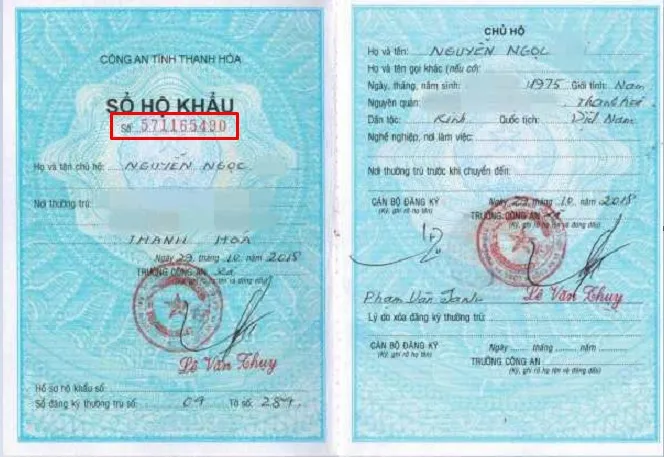 CÔNG AN TỈNH THANH HÓA
SỔ HỘ KHẨU
Số 571165430
Họ và tên chủ hộ: NGUYỄN NGỌC
Nơi thường trú:
THANH HÓA
Ngày 29, tháng 10, năm 2018
TRƯỞNG CÔNG AN Xã
(Ký, ghi rõ họ tên và đóng dấu)
Lê Văn Thuy
Hồ sơ hộ khẩu số:
Sổ đăng ký thường trú số: 09 Tờ số: 289
CHỦ HỘ
Họ và tên: NGUYỄN NGỌC
Họ và tên gọi khác (nếu có):
Ngày, tháng, năm sinh: 1975 Giới tính: Nam
Nguyên quán: Thanh Hóa
Dân tộc: Kinh Quốc tịch: Việt Nam
Nghề nghiệp, nơi làm việc:
Nơi thường trú trước khi chuyển đến:
Ngày 29, tháng 10, năm 2018
CÁN BỘ ĐĂNG KÝ TRƯỞNG CÔNG AN
(Ký, ghi rõ họ tên) (Ký, ghi rõ họ tên và đóng dấu)
Phạm Văn Lê Văn Thuy
Lý do xóa đăng ký thường trú:
Ngày tháng năm
CÁN BỘ ĐĂNG KÝ TRƯỞNG CÔNG AN
(Ký, ghi rõ họ tên) (Ký, ghi rõ họ tên và đóng dấu)